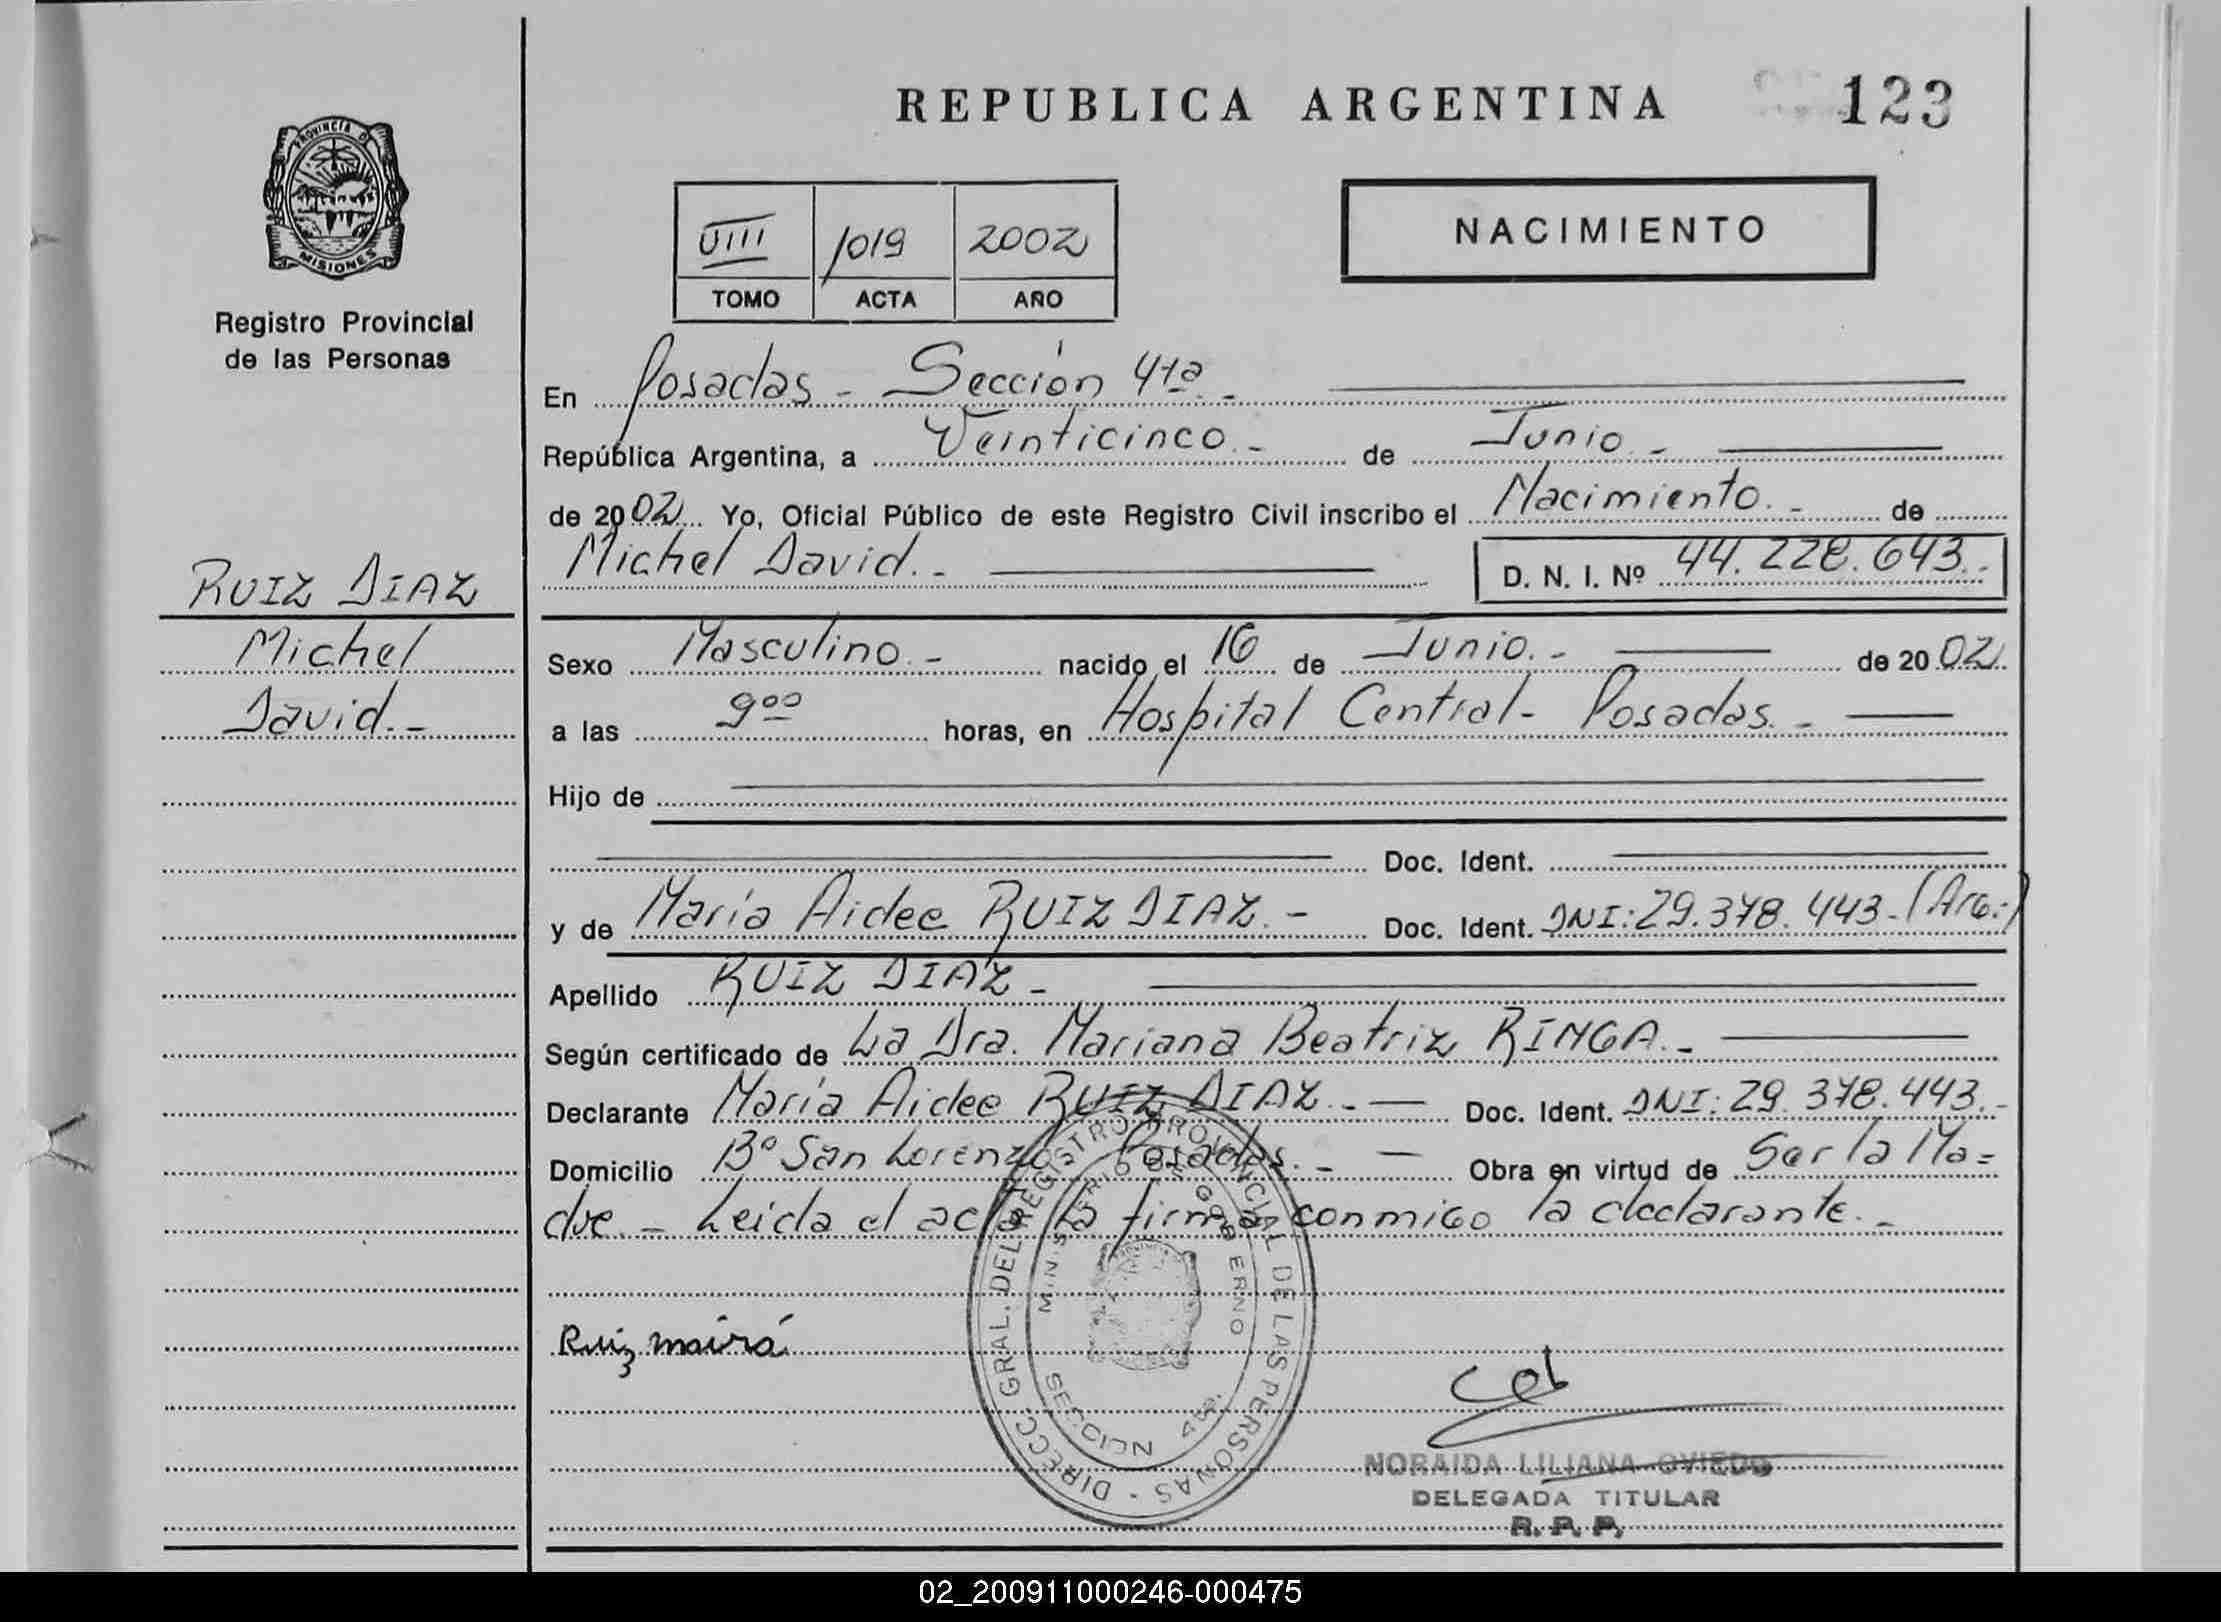 REPUBLICA ARGENTINA
123
PROVINCIA DE
MISIONES
Registro Provincial
de las Personas
VIII 1019 2002
TOMO ACTA AÑO
NACIMIENTO
En Posadas - Sección 4ta -
República Argentina, a Veinticinco.- de Junio.-
de 2002 Yo, Oficial Público de este Registro Civil inscribo el Nacimiento.- de
Michel David.-
D. N. I. Nº 44.228.643.
RUIZ DIAZ
Michel
David.-
Sexo Masculino.- nacido el 16 de Junio.- de 2002
a las 9 00 horas, en Hospital Central - Posadas.-
Hijo de
Doc. Ident.
y de María Aidee RUIZ DIAZ.- Doc. Ident. DNI: 29.378.443-(Arg.)
Apellido RUIZ DIAZ -
Según certificado de La Dra. Mariana Beatriz RINGA.-
Declarante María Aidee RUIZ DIAZ.- Doc. Ident. DNI: 29.378.443.-
Domicilio Bº San Lorenzo - Posadas.- Obra en virtud de Ser la Ma=
dre.- Leida el acta la firma conmigo la declarante.-
DIRECC. GRAL. DEL REGISTRO PROVINCIAL DE LAS PERSONAS -
MINISTERIO DE GOBIERNO
SECCION 4ta.
Ruiz
NORAIDA LILIANA OVIEDO
DELEGADA TITULAR
R. P. P.
02_200911000246-000475